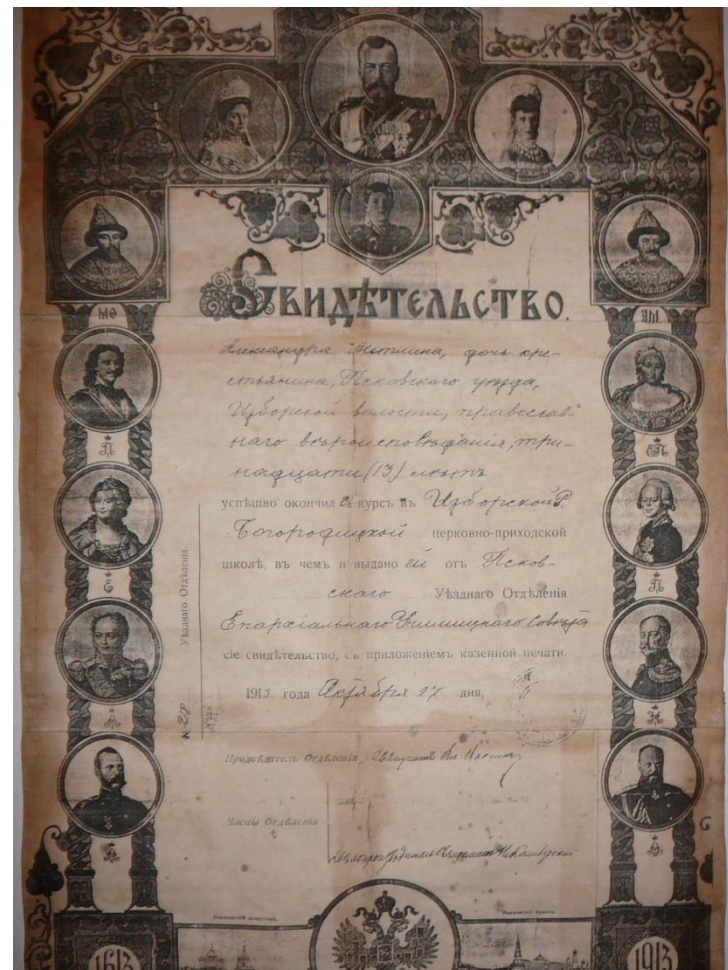 МѲ
ЯМ
П
ЕП
Е
П
А
Н
А
А
СВИДѢТЕЛЬСТВО.
Александра дочь кре-
стьянина, Псковскаго уѣзда,
Изборской волости, православ-
наго вѣроисповѣданія, три-
надцати (13) лѣтъ
успѣшно окончила курсъ въ Изборской Р.
Богородицкой церковно-приходской
школѣ, въ чемъ и выдано ей отъ Псков-
скаго Уѣзднаго Отдѣленія
Епархіальнаго Училищнаго Совѣта
сіе свидѣтельство, съ приложеніемъ казенной печати.
191 года Октября 27 дня,
Уѣзднаго Отдѣленія.
№ 28
Предсѣдатель Отдѣленія, Священникъ
Члены Отдѣленія
Священникъ
1613
1913